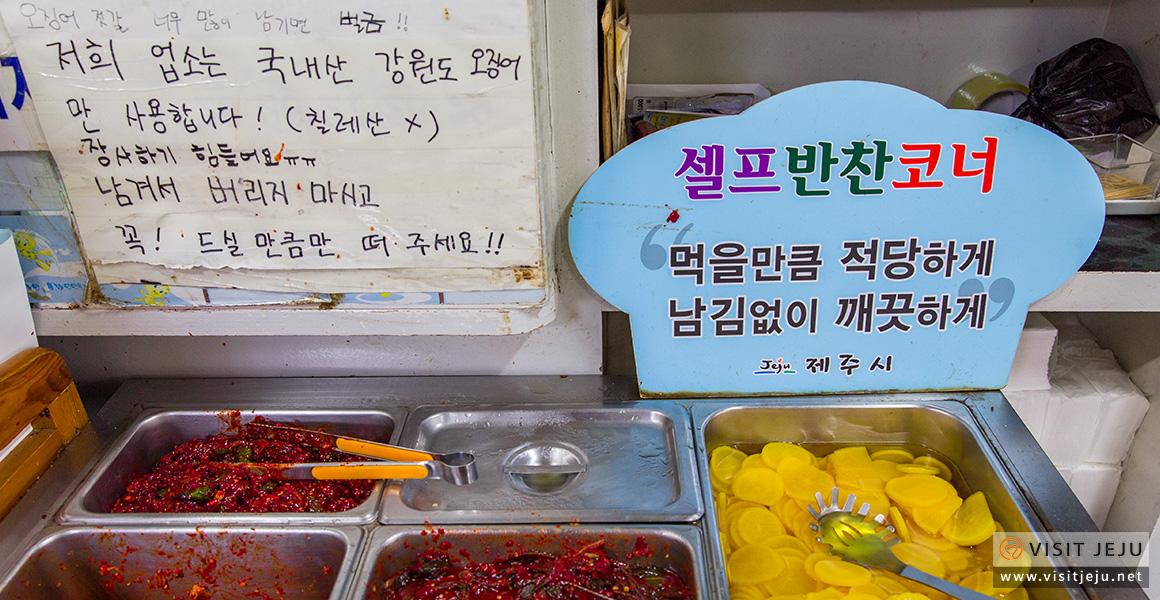 오징어 젓갈 너무 많이 남기면 벌금!!
저희 업소는 국내산 강원도 오징어
만 사용합니다! (칠레산 x)
장사하기 힘들어요ㅠㅠ
남겨서 버리지 마시고
꼭! 드실 만큼만 떠 주세요!!
셀프반찬코너
“먹을만큼 적당하게
남김없이 깨끗하게”
Jeju 제주시
VISIT JEJU
www.visitjeju.net